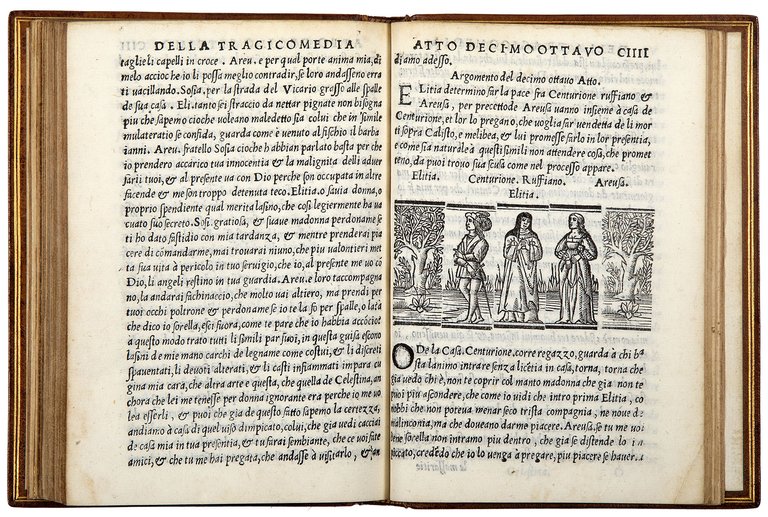 DELLA TRAGICOMEDIA
taglieli capelli in croce . Areu . e per qual porte anima mia, di
melo accioche io li possa meglio contradir, se loro andasseno erra
ti vacillando . Sosia, per la strada del Vicario grosso alle spalle
de sua casa . Eli . tanto sei straccio da nettar pignate non bisogna
piu che sapemo cioche voleano maledetto sia colui che in simile
mulateratio se confida, guarda come è venuto al fischio il barba
ianni . Areu . fratello Sosia cioche habbian parlato basta per che
io prendero accarico tua innocentia & la malignita delli aduer
sarii tuoi, & al presente ua con Dio perche son occupata in altre
facende & me son troppo detenuta teco . Elitia . o sauia donna, o
proprio spendiente qual merita lasino, che cosi legiermente ha va
cuato suo secreto . Sosi . gratiosa, & suaue madonna perdoname se
ti ho dato fastidio con mia tardanza, & mentre prenderai pia
cere di comandarme, mai trouarai niuno, che piu ualontieri met
ta sua uita à pericolo in tuo seruigio, che io, al presente me uo cō
Dio, li angeli restino in tua guardia . Areu . e loro taccompagna
no, la andarai fachinaccio, che molto vai altiero, ma prendi per
tuoi occhi poltrone & perdoname se io te la fo per spalle, o la à
che dico io sorella, esci fuora, come te pare che io habbia accōcio
a questo modo trato tutti li simili par suoi, in questa guisa escono
lasini de mie mano carchi de legname come costui, & li discreti
spauentati, li deuoti alterati, & li casti infiammati impara cu
gina mia cara, che altra arte e questa, che quella de Celestina, an
chora che lei me tenesse per donna ignorante era perche io me vo
lea esserli , & puoi che gia de questo fatto sapemo la certezza,
andiamo à casa di quel uiso dimpicato, colui, che gia uedi cacciai
de casa mia in tua presentia, & tu farai sembiante, che ce voi fate
amici, & che tu me hai pregata, che andasse à uisitarlo, & an
ATTO DECIMOOTTAVO CIIII
diamo adesso.
Argomento del decimo ottauo Atto.
ELitia determino far la pace fra Centurione ruffiano &
Areusa, per precetto de Areusa uanno insieme à casa de
Centurione, et lor lo pregano, che uoglia far uendetta de li mor
ti sopra Calisto, e melibea, & lui promesse farlo in lor presentia,
e come sia naturale à questi simili non attendere cosa, che promet
teno, da puoi trouo sua scusa come nel processo appare.
Elitia. Centurione. Ruffiano. Areusa.
Elitia.
ODe la Casa. Centurione. corre regazzo, guarda à chi ba
sta lanimo intrare senza licētia in casa, torna, torna che
gia uedo chi è, non te coprir col manto madonna che gia non te
puoi piu ascondere, che come io uidi che intro prima Elitia , co
nobbi che non poteua menar seco trista compagnia, ne noue de
malinconia, ma che doueano darme piacere. Areusa, se tu me uoi
bene sorella non intramo piu dentro , che gia se distende lo im
piccato, credēdo che io lo uenga à pregare, piu piacere se hauer